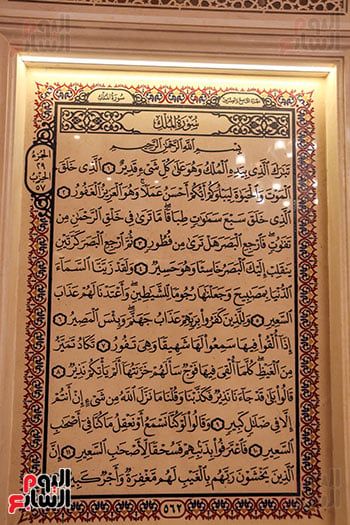 سُورَةُ المُلْكِ
الجُزءُ التَّاسِعُ وَالعِشْرُونَ
سُورَةُ المُلْكِ
الجُزْء
٢٩
الحِزْب
٥٧
بِسْمِ اللَّهِ الرَّحْمَٰنِ الرَّحِيمِ
تَبَٰرَكَ الَّذِى بِيَدِهِ الْمُلْكُ وَهُوَ عَلَىٰ كُلِّ شَىْءٍ قَدِيرٌ ١ الَّذِى خَلَقَ
الْمَوْتَ وَالْحَيَوٰةَ لِيَبْلُوَكُمْ أَيُّكُمْ أَحْسَنُ عَمَلًا وَهُوَ الْعَزِيزُ الْغَفُورُ ٢
الَّذِى خَلَقَ سَبْعَ سَمَٰوَٰتٍ طِبَاقًا مَّا تَرَىٰ فِى خَلْقِ الرَّحْمَٰنِ مِن
تَفَٰوُتٍ فَارْجِعِ الْبَصَرَ هَلْ تَرَىٰ مِن فُطُورٍ ٣ ثُمَّ ارْجِعِ الْبَصَرَ كَرَّتَيْنِ
يَنقَلِبْ إِلَيْكَ الْبَصَرُ خَاسِئًا وَهُوَ حَسِيرٌ ٤ وَلَقَدْ زَيَّنَّا السَّمَاءَ
الدُّنْيَا بِمَصَٰبِيحَ وَجَعَلْنَٰهَا رُجُومًا لِّلشَّيَٰطِينِ وَأَعْتَدْنَا لَهُمْ عَذَابَ
السَّعِيرِ ٥ وَلِلَّذِينَ كَفَرُوا بِرَبِّهِمْ عَذَابُ جَهَنَّمَ وَبِئْسَ الْمَصِيرُ ٦
إِذَا أُلْقُوا فِيهَا سَمِعُوا لَهَا شَهِيقًا وَهِىَ تَفُورُ ٧ تَكَادُ تَمَيَّزُ
مِنَ الْغَيْظِ كُلَّمَا أُلْقِىَ فِيهَا فَوْجٌ سَأَلَهُمْ خَزَنَتُهَا أَلَمْ يَأْتِكُمْ نَذِيرٌ ٨
قَالُوا بَلَىٰ قَدْ جَاءَنَا نَذِيرٌ فَكَذَّبْنَا وَقُلْنَا مَا نَزَّلَ اللَّهُ مِن شَىْءٍ إِنْ أَنتُمْ
إِلَّا فِى ضَلَٰلٍ كَبِيرٍ ٩ وَقَالُوا لَوْ كُنَّا نَسْمَعُ أَوْ نَعْقِلُ مَا كُنَّا فِى أَصْحَٰبِ
السَّعِيرِ ١٠ فَاعْتَرَفُوا بِذَنبِهِمْ فَسُحْقًا لِّأَصْحَٰبِ السَّعِيرِ ١١ إِنَّ
الَّذِينَ يَخْشَوْنَ رَبَّهُم بِالْغَيْبِ لَهُم مَّغْفِرَةٌ وَأَجْرٌ كَبِيرٌ
٥٦٢
اليوم السابع